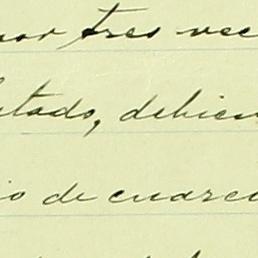 por tres vec
itado, debien
io de cuaren